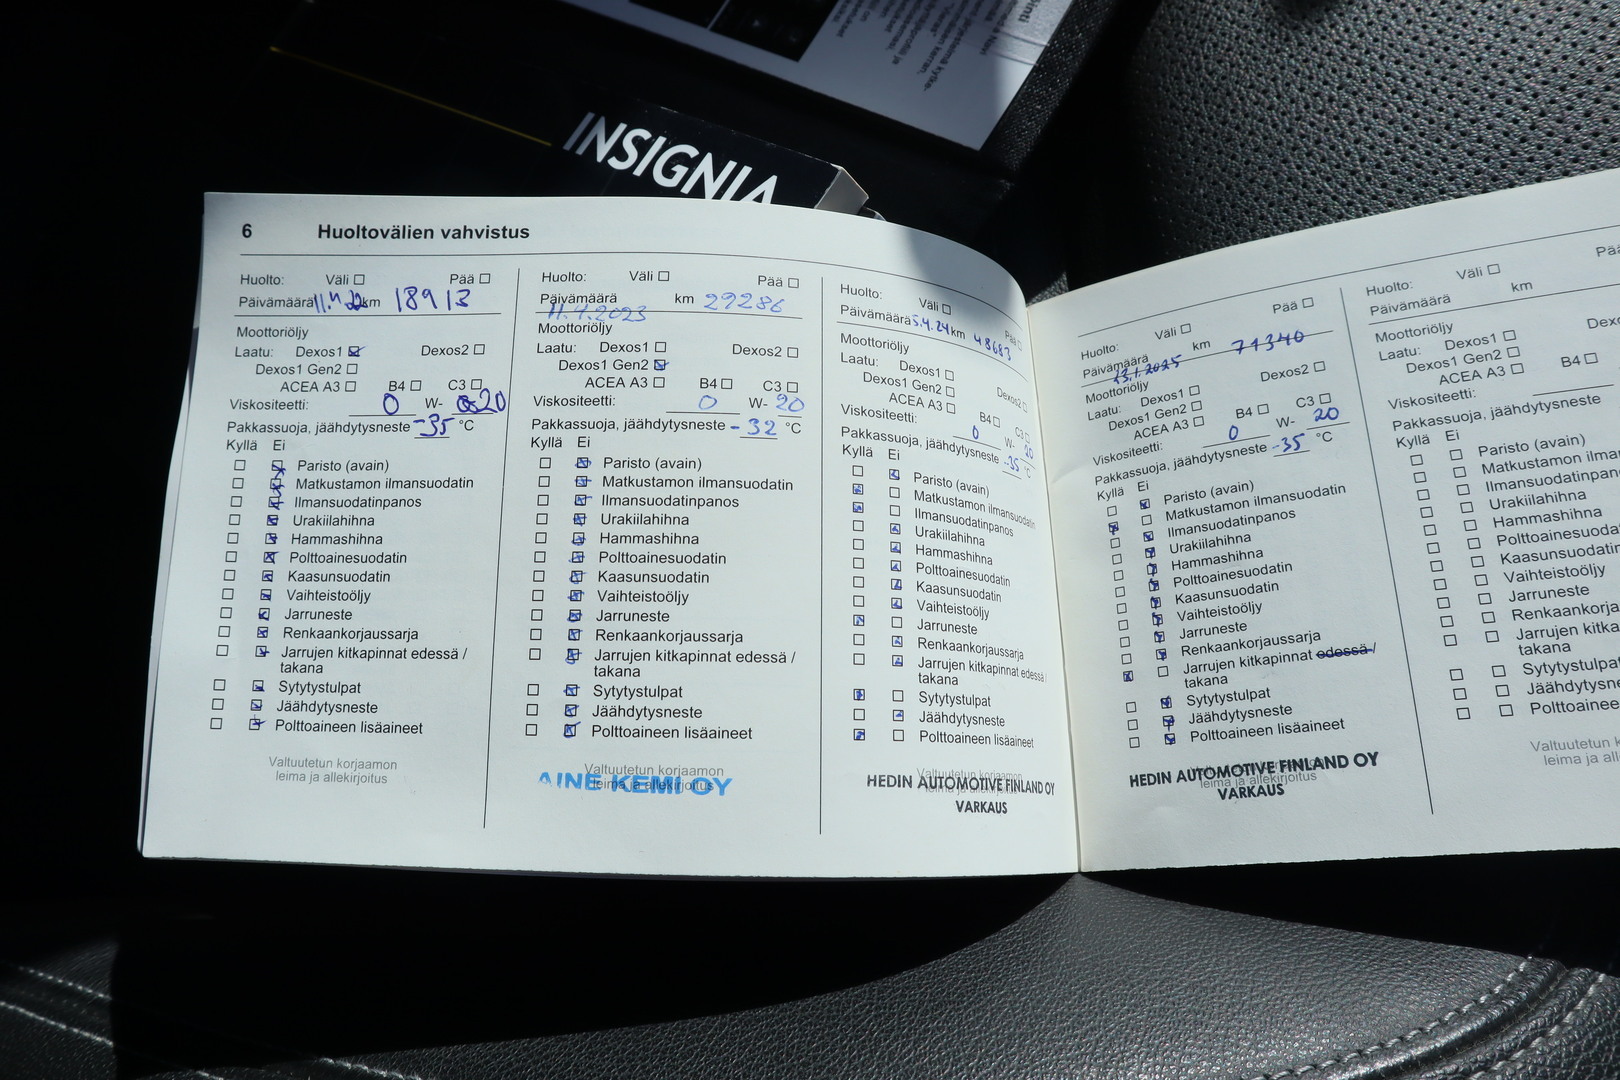 INSIGNIA
6 Huoltovälien vahvistus
Huolto: Väli Pää
Päivämäärä 11.4.22 km 18913
Moottoriöljy
Laatu: Dexos1 Dexos2
Dexos1 Gen2
ACEA A3 B4 C3
Viskositeetti: 0 W- 20
Pakkassuoja, jäähdytysneste -35 °C
Kyllä Ei
Paristo (avain)
Matkustamon ilmansuodatin
Ilmansuodatinpanos
Urakiilahihna
Hammashihna
Polttoainesuodatin
Kaasunsuodatin
Vaihteistoöljy
Jarruneste
Renkaankorjaussarja
Jarrujen kitkapinnat edessä /
takana
Sytytystulpat
Jäähdytysneste
Polttoaineen lisäaineet
Valtuutetun korjaamon
leima ja allekirjoitus
Huolto: Väli Pää
Päivämäärä km 29286
11.4.2023
Moottoriöljy
Laatu: Dexos1 Dexos2
Dexos1 Gen2
ACEA A3 B4 C3
Viskositeetti: 0 W- 20
Pakkassuoja, jäähdytysneste -32 °C
Kyllä Ei
Paristo (avain)
Matkustamon ilmansuodatin
Ilmansuodatinpanos
Urakiilahihna
Hammashihna
Polttoainesuodatin
Kaasunsuodatin
Vaihteistoöljy
Jarruneste
Renkaankorjaussarja
Jarrujen kitkapinnat edessä /
takana
Sytytystulpat
Jäähdytysneste
Polttoaineen lisäaineet
Valtuutetun korjaamon
leima ja allekirjoitus
AINE KEMI OY
Huolto: Väli Pää
Päivämäärä 5.4.24 km 48683
Moottoriöljy
Laatu: Dexos1 Dexos2
Dexos1 Gen2
ACEA A3 B4 C3
Viskositeetti: 0 W- 20
Pakkassuoja, jäähdytysneste -35 °C
Kyllä Ei
Paristo (avain)
Matkustamon ilmansuodatin
Ilmansuodatinpanos
Urakiilahihna
Hammashihna
Polttoainesuodatin
Kaasunsuodatin
Vaihteistoöljy
Jarruneste
Renkaankorjaussarja
Jarrujen kitkapinnat edessä /
takana
Sytytystulpat
Jäähdytysneste
Polttoaineen lisäaineet
Valtuutetun korjaamon
leima ja allekirjoitus
HEDIN AUTOMOTIVE FINLAND OY
VARKAUS
Huolto: Väli Pää
Päivämäärä km 71340
13.1.2025
Moottoriöljy
Laatu: Dexos1 Dexos2
Dexos1 Gen2
ACEA A3 B4 C3
Viskositeetti: 0 W- 20
Pakkassuoja, jäähdytysneste -35 °C
Kyllä Ei
Paristo (avain)
Matkustamon ilmansuodatin
Ilmansuodatinpanos
Urakiilahihna
Hammashihna
Polttoainesuodatin
Kaasunsuodatin
Vaihteistoöljy
Jarruneste
Renkaankorjaussarja
Jarrujen kitkapinnat edessä /
takana
Sytytystulpat
Jäähdytysneste
Polttoaineen lisäaineet
Valtuutetun korjaamon
leima ja allekirjoitus
HEDIN AUTOMOTIVE FINLAND OY
VARKAUS
Huolto: Väli Pää
Päivämäärä km
Moottoriöljy
Laatu: Dexos1
Dexos1 Gen2
ACEA A3 B4
Viskositeetti:
Pakkassuoja, jäähdytysneste
Kyllä Ei
Paristo (avain)
Matkustamon ilmans
Ilmansuodatinpano
Urakiilahihna
Hammashihna
Polttoainesuodat
Kaasunsuodatin
Vaihteistoöljy
Jarruneste
Renkaankorja
Jarrujen kitka
takana
Sytytystulpat
Jäähdytysne
Polttoaineen
Valtuutetun kor
leima ja all